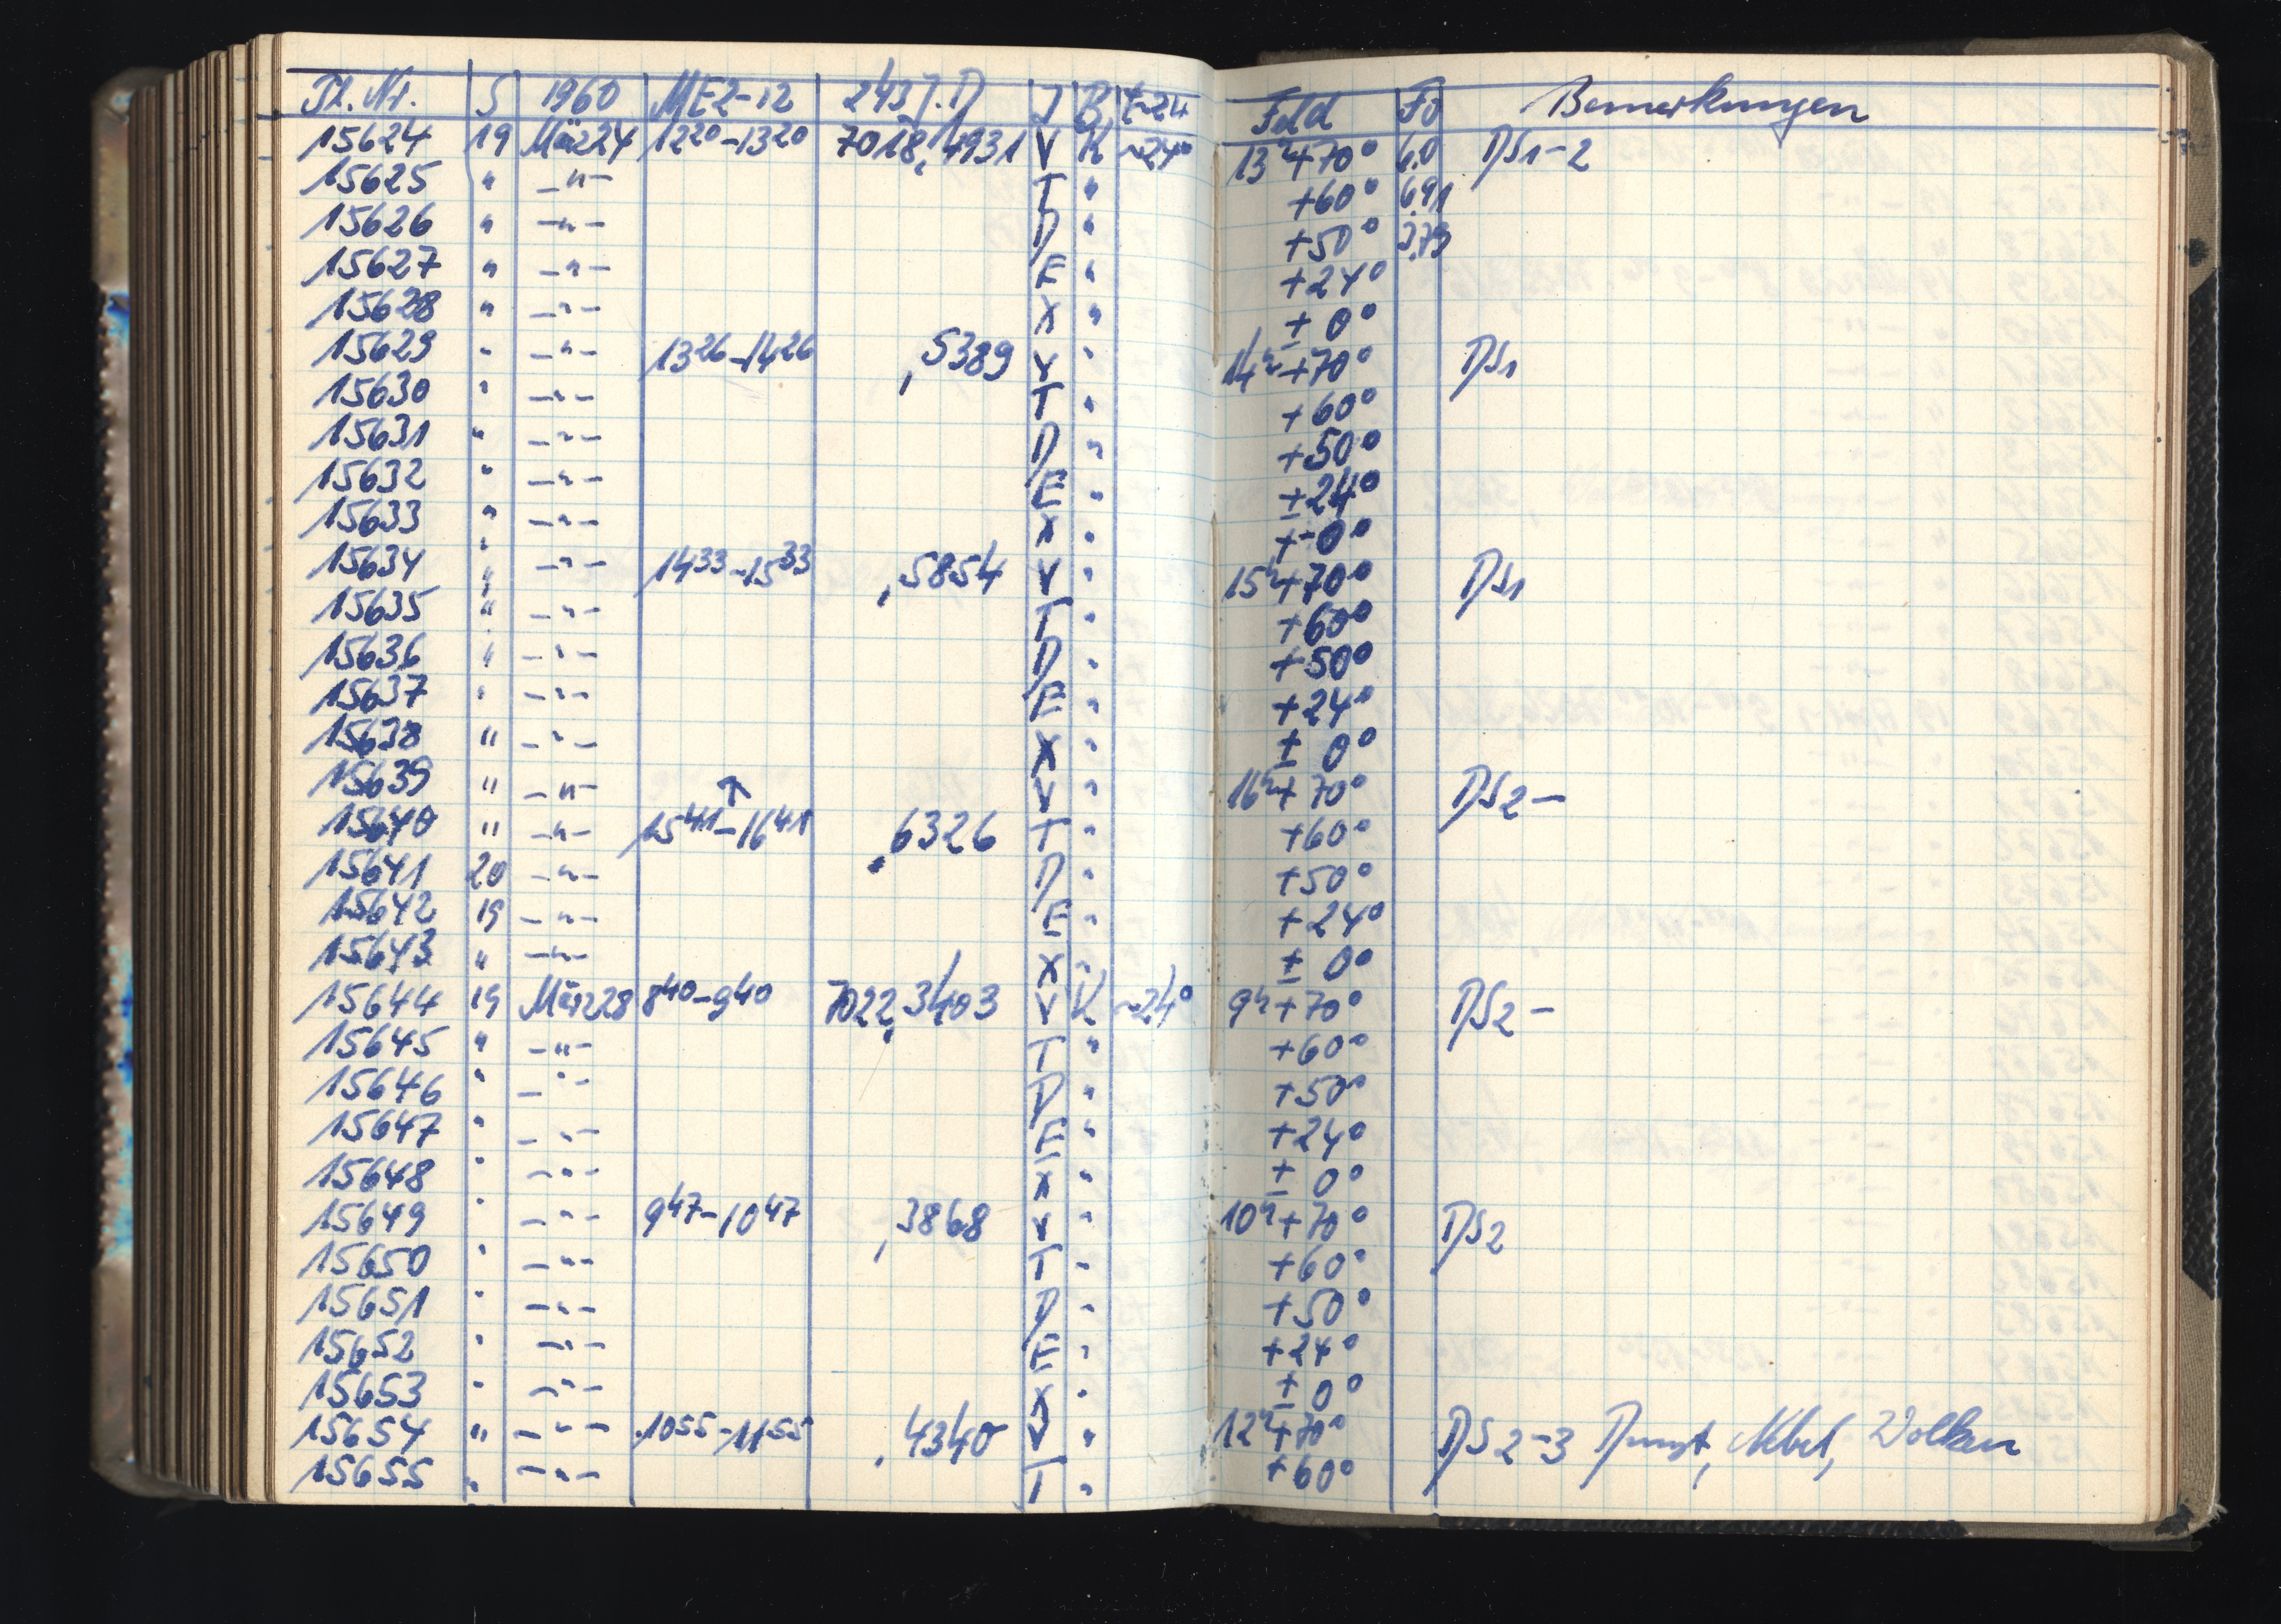 Pl. Nr. S 1960 MEZ-12 243 J.D J B t~24 Feld Fo Bemerkungen
15624 19 März24 12²⁰-13²⁰ 7018,4931 V K ~24° 13ʰ+70° 6.0 DS1-2
15625 " -"- T " +60° 6.91
15626 " -"- D " +50° 3.79
15627 " -"- E " +24°
15628 " -"- X " ± 0°
15629 " -"- 13²⁶-14²⁶ ,5389 V " 14ʰ+70° DS1
15630 " -"- T " +60°
15631 " -"- D " +50°
15632 " -"- E " +24°
15633 " -"- X " ± 0°
15634 " -"- 14³³-15³³ ,5854 V " 15ʰ+70° DS1
15635 " -"- T " +60°
15636 " -"- D " +50°
15637 " -"- E " +24°
15638 " -"- X " ± 0°
15639 " -"- ↑ V " 16ʰ+70° DS2-
15640 " -"- 15⁴¹-16⁴¹ ,6326 T " +60°
15641 20 -"- D " +50°
15642 19 -"- E " +24°
15643 " -"- X " ± 0°
15644 19 März28 8⁴⁰-9⁴⁰ 7022,3403 V K ~24° 9ʰ+70° DS2-
15645 " -"- T " +60°
15646 " -"- D " +50°
15647 " -"- E " +24°
15648 " -"- X " ± 0°
15649 " -"- 9⁴⁷-10⁴⁷ ,3868 V " 10ʰ+70° DS2
15650 " -"- T " +60°
15651 " -"- D " +50°
15652 " -"- E " +24°
15653 " -"- X " ± 0°
15654 " -"- 10⁵⁵-11⁵⁵ ,4340 V " 12ʰ+70° DS2-3 Dunst, Nebel, Wolken
15655 " -"- T " +60°